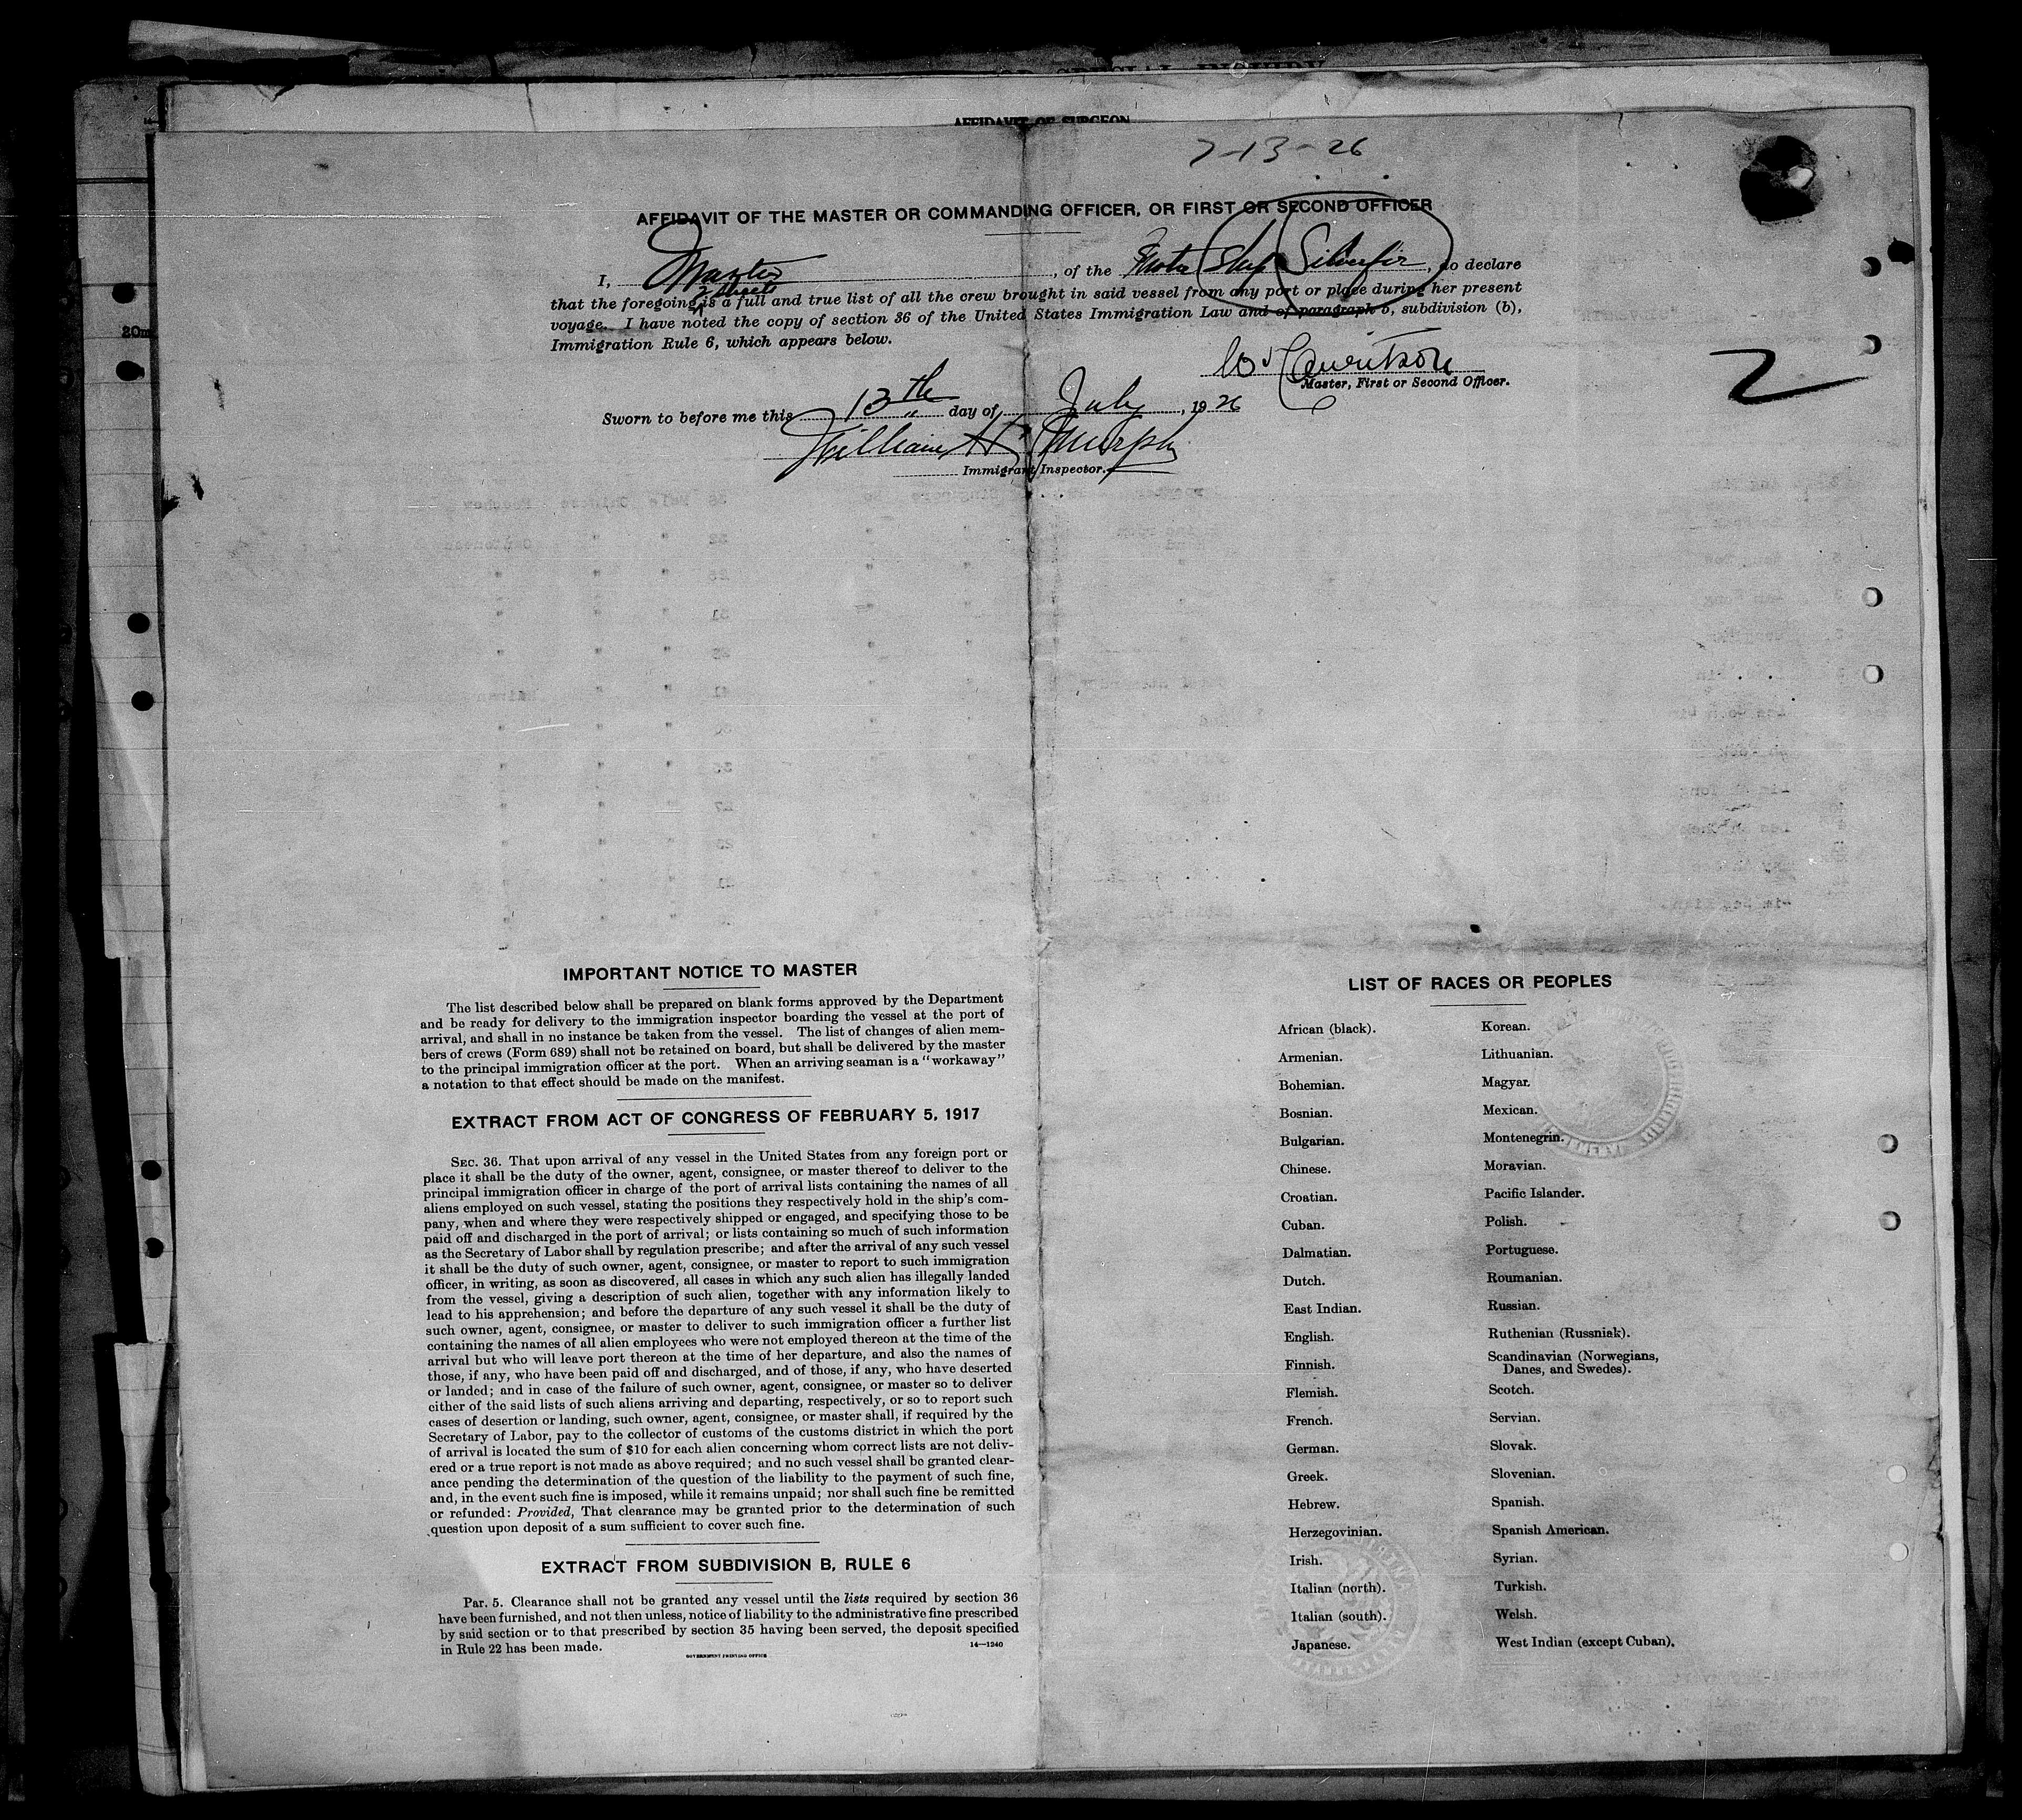 AFFIDAVIT OF SURGEON
7-13-26
AFFIDAVIT OF THE MASTER OR COMMANDING OFFICER, OR FIRST OR SECOND OFFICER
I, Master, of the Motor Ship Silverfir, do declare
2 sheets
that the foregoing is a full and true list of all the crew brought in said vessel from any port or place during her present
voyage. I have noted the copy of section 36 of the United States Immigration Law and of paragraph 5, subdivision (b),
Immigration Rule 6, which appears below.
Master, First or Second Officer.
2
Sworn to before me this 13th day of July, 1926
William H. Murphy
Immigrant Inspector.
IMPORTANT NOTICE TO MASTER
The list described below shall be prepared on blank forms approved by the Department
and be ready for delivery to the immigration inspector boarding the vessel at the port of
arrival, and shall in no instance be taken from the vessel. The list of changes of alien mem-
bers of crews (Form 689) shall not be retained on board, but shall be delivered by the master
to the principal immigration officer at the port. When an arriving seaman is a "workaway"
a notation to that effect should be made on the manifest.
EXTRACT FROM ACT OF CONGRESS OF FEBRUARY 5, 1917
SEC. 36. That upon arrival of any vessel in the United States from any foreign port or
place it shall be the duty of the owner, agent, consignee, or master thereof to deliver to the
principal immigration officer in charge of the port of arrival lists containing the names of all
aliens employed on such vessel, stating the positions they respectively hold in the ship's com-
pany, when and where they were respectively shipped or engaged, and specifying those to be
paid off and discharged in the port of arrival; or lists containing so much of such information
as the Secretary of Labor shall by regulation prescribe; and after the arrival of any such vessel
it shall be the duty of such owner, agent, consignee, or master to report to such immigration
officer, in writing, as soon as discovered, all cases in which any such alien has illegally landed
from the vessel, giving a description of such alien, together with any information likely to
lead to his apprehension; and before the departure of any such vessel it shall be the duty of
such owner, agent, consignee, or master to deliver to such immigration officer a further list
containing the names of all alien employees who were not employed thereon at the time of the
arrival but who will leave port thereon at the time of her departure, and also the names of
those, if any, who have been paid off and discharged, and of those, if any, who have deserted
or landed; and in case of the failure of such owner, agent, consignee, or master so to deliver
either of the said lists of such aliens arriving and departing, respectively, or so to report such
cases of desertion or landing, such owner, agent, consignee, or master shall, if required by the
Secretary of Labor, pay to the collector of customs of the customs district in which the port
of arrival is located the sum of $10 for each alien concerning whom correct lists are not deliv-
ered or a true report is not made as above required; and no such vessel shall be granted clear-
ance pending the determination of the question of the liability to the payment of such fine,
and, in the event such fine is imposed, while it remains unpaid; nor shall such fine be remitted
or refunded: Provided, That clearance may be granted prior to the determination of such
question upon deposit of a sum sufficient to cover such fine.
EXTRACT FROM SUBDIVISION B, RULE 6
Par. 5. Clearance shall not be granted any vessel until the lists required by section 36
have been furnished, and not then unless, notice of liability to the administrative fine prescribed
by said section or to that prescribed by section 35 having been served, the deposit specified
in Rule 22 has been made.
14—1240
GOVERNMENT PRINTING OFFICE
LIST OF RACES OR PEOPLES
African (black).
Armenian.
Bohemian.
Bosnian.
Bulgarian.
Chinese.
Croatian.
Cuban.
Dalmatian.
Dutch.
East Indian.
English.
Finnish.
Flemish.
French.
German.
Greek.
Hebrew.
Herzegovinian.
Irish.
Italian (north).
Italian (south).
Japanese.
Korean.
Lithuanian.
Magyar.
Mexican.
Montenegrin.
Moravian.
Pacific Islander.
Polish.
Portuguese.
Roumanian.
Russian.
Ruthenian (Russniak).
Scandinavian (Norwegians,
Danes, and Swedes).
Scotch.
Servian.
Slovak.
Slovenian.
Spanish.
Spanish American.
Syrian.
Turkish.
Welsh.
West Indian (except Cuban).